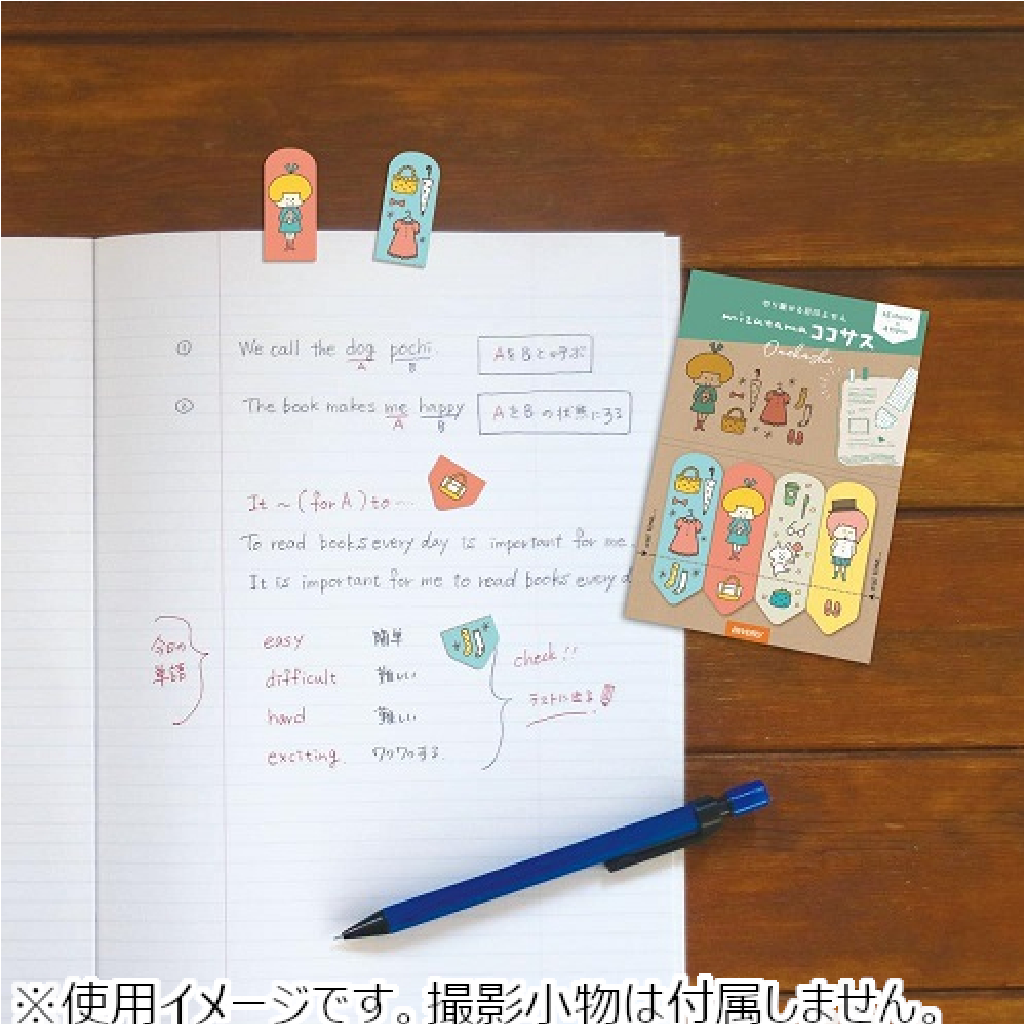 ① We call the dog pochi.
A B
AをBとよぶ
② The book makes me happy
A B
AをBの状態にする
It ~ (for A) to …
To read books every day is important for me.
It is important for me to read books every d
今日の
単語
easy 簡単
difficult 難しい
hard 難しい
exciting ワクワクする
check!!
テストに出る
切り離せる付箋ふせん
mizutama ココサス
Omekashi
beverly
※使用イメージです。撮影小物は付属しません。